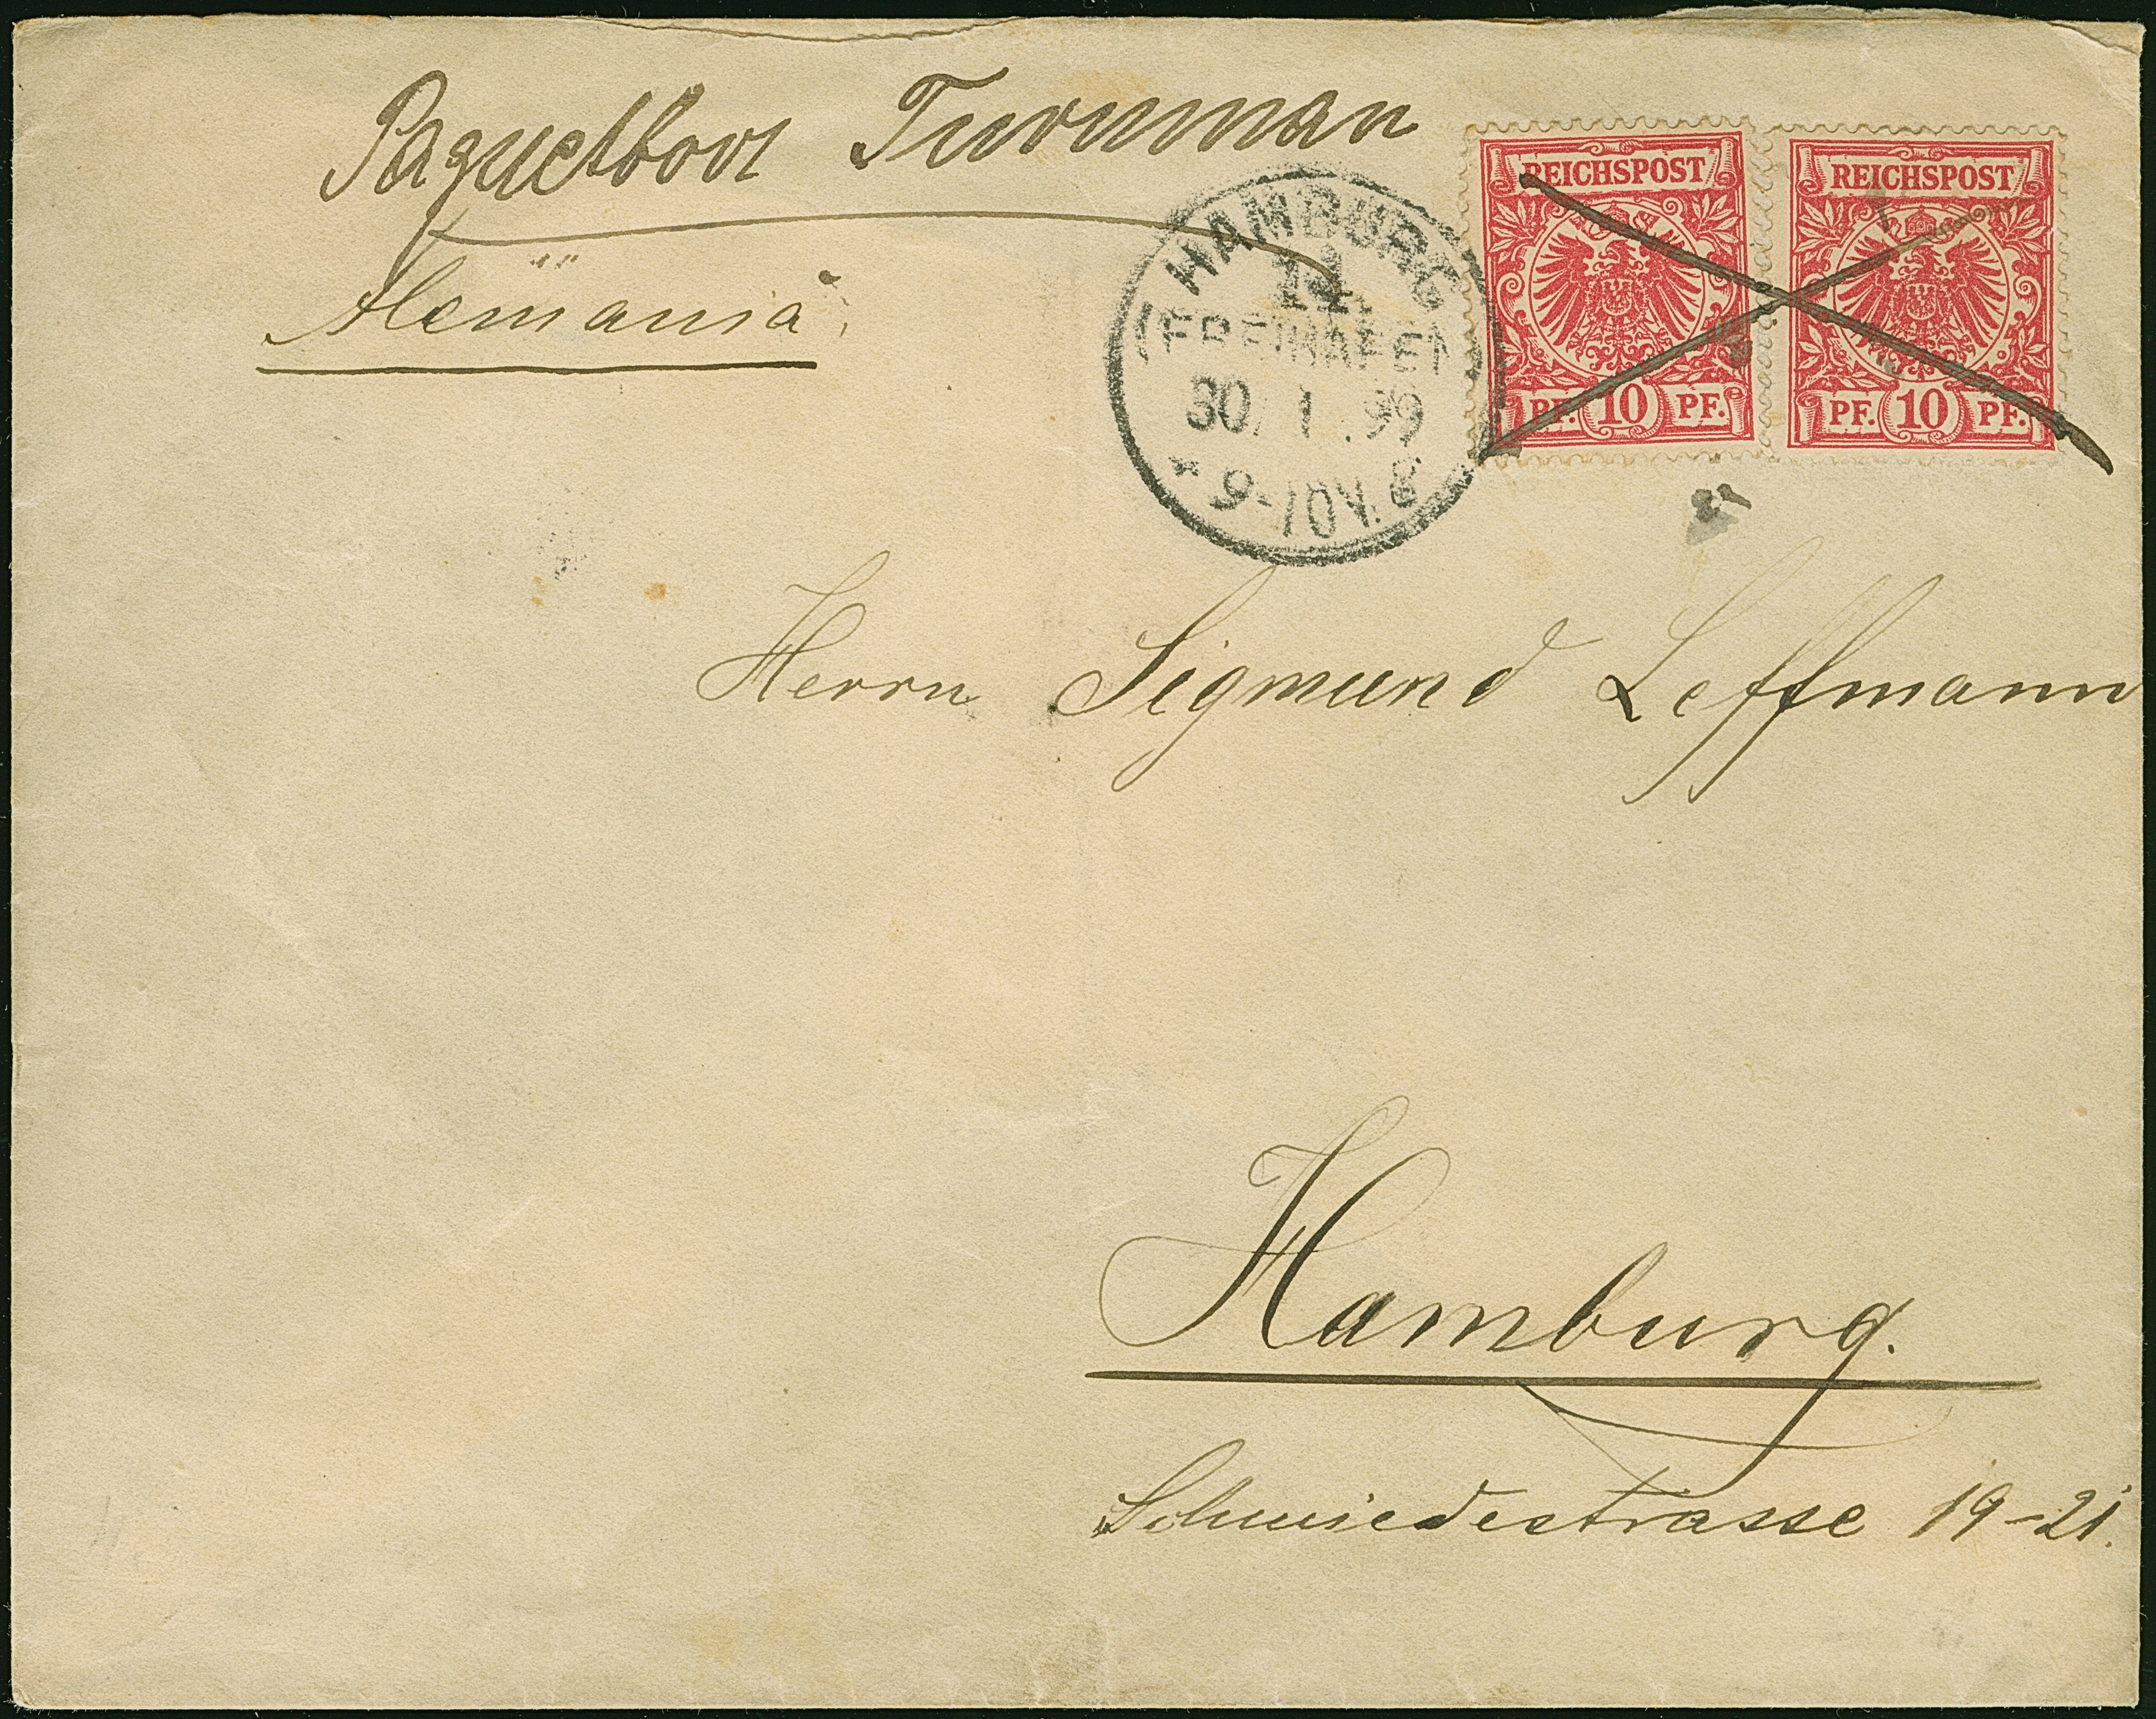 Paquetboot Turnman
Alemania
REICHSPOST
PF. 10 PF.
REICHSPOST
PF. 10 PF.
HAMBURG
14.
(FREIHAFEN
30/1.99
* 9-10V. *
Herrn Sigmund Leffmann
Hamburg.
Schmiedestrasse 19-21.